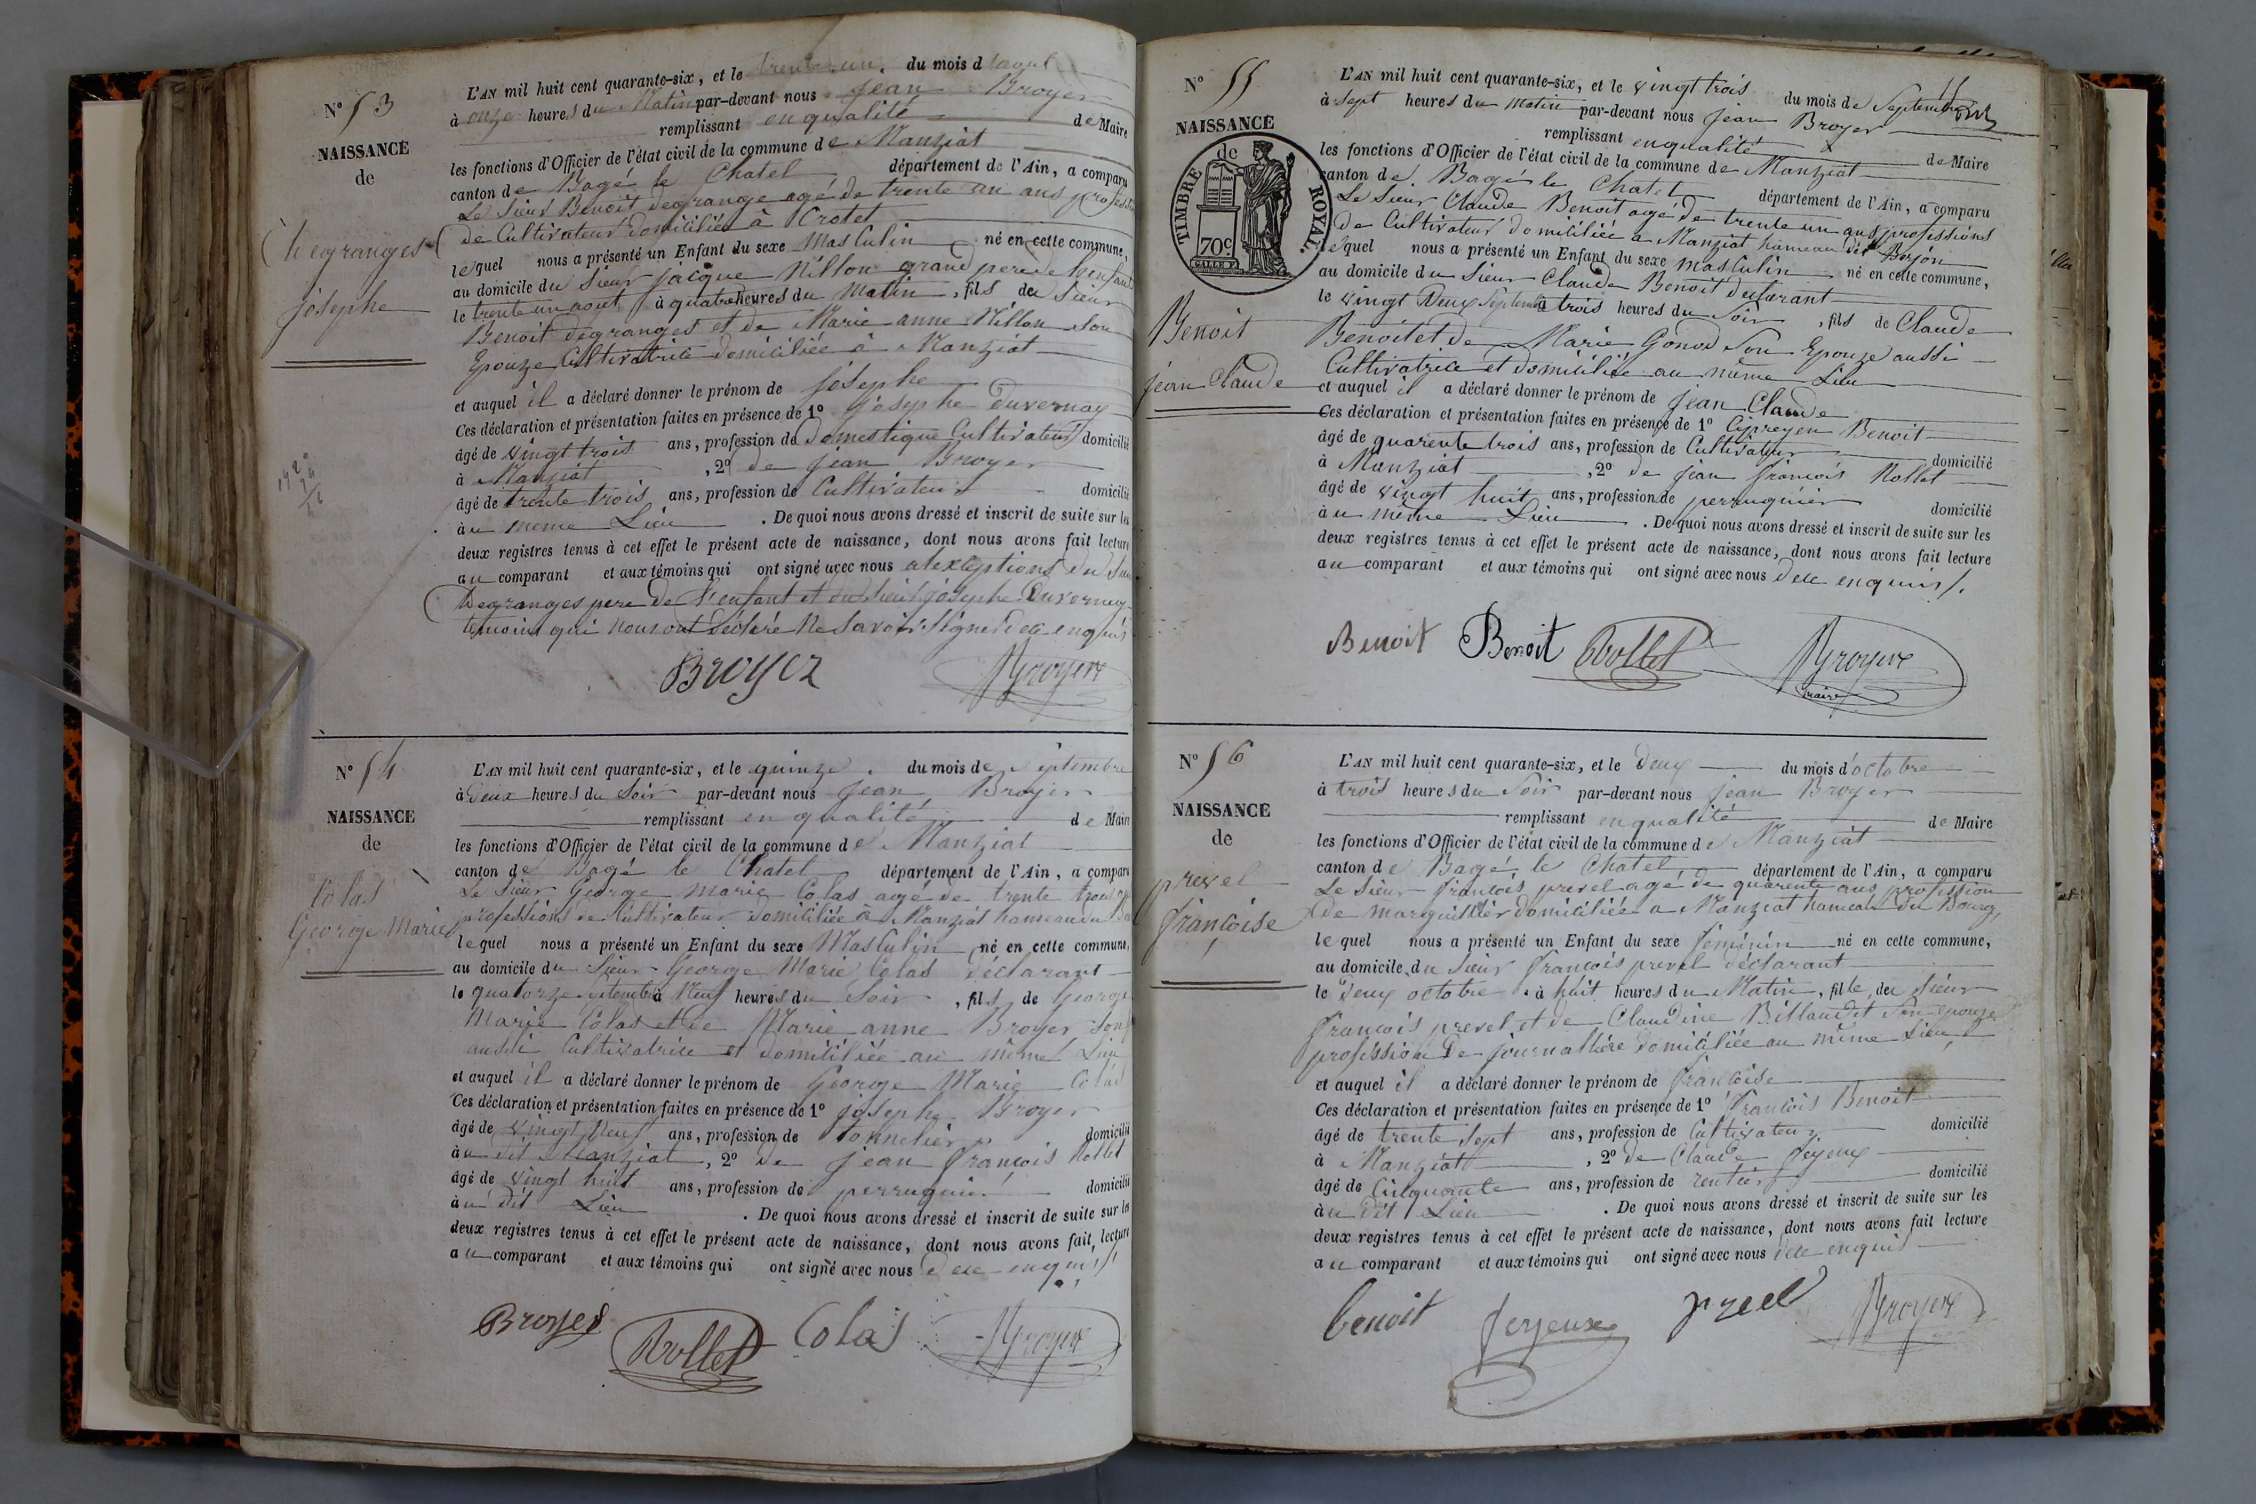 N° 53
NAISSANCE
de
Degranges
josephe
L'AN mil huit cent quarante-six, et le trente un du mois d'aout
à onze heures du Matin par-devant nous Jean Broyer
remplissant en qualité de Maire
les fonctions d'Officier de l'état civil de la commune de Manziat
canton de Bagé le Chatel département de l'Ain, a comparu
Le Sieur Benoit degrange agé de trente un ans profession
de Cultivateur domiciliée à Crotet
lequel nous a présenté un Enfant du sexe Masculin né en cette commune,
au domicile du Sieur jacque Nillon grand pere de l'enfant
le trente un aout à quatre heures du Matin, fils du Sieur
Benoit degranges et de Marie anne Nillon Son
Epouze Cultivatrice domiciliée à Manziat
et auquel il a déclaré donner le prénom de josephe
Ces déclaration et présentation faites en présence de 1° josephe Duvernay
âgé de vingt trois ans, profession de Domestique Cultivateur domicilié
à Manziat, 2° de jean Broyer
âgé de trente trois ans, profession de Cultivateur domicilié
à u meme Lieu. De quoi nous avons dressé et inscrit de suite sur les
deux registres tenus à cet effet le présent acte de naissance, dont nous avons fait lecture
au comparant et aux témoins qui ont signé avec nous a lexceptions du Sieur
Degranges pere de l'enfant et du Sieur josephe Duvernay
temoins qui nous ont déclaré ne Savoir Signer de ce enquis
Broyer Broyer
N° 54
NAISSANCE
de
Colas
George Marie
L'AN mil huit cent quarante-six, et le quinze du mois de Septembre
à Deux heures du Soir par-devant nous Jean Broyer
remplissant en qualité de Maire
les fonctions d'Officier de l'état civil de la commune de Manziat
canton de Bagé le Chatel département de l'Ain, a comparu
Le Sieur George marie Colas agé de trente trois
professions de Cultivateur domiciliée à Manziat hameau du
lequel nous a présenté un Enfant du sexe Masculin né en cette commune,
au domicile du Sieur George Marie Colas déclarant
le quatorze septembre à Neuf heures du Soir, fils de George
Marie Colas et de Marie anne Broyer Son
aussi Cultivatrice et domiciliée au même Lieu
et auquel il a déclaré donner le prénom de George Marie Colas
Ces déclaration et présentation faites en présence de 1° josephe Broyer
âgé de vingt Neuf ans, profession de tonnelier domicilié
à u dit Manziat, 2° de jean françois Rollet
âgé de vingt huit ans, profession de perruquier domicilié
à u dit Lieu. De quoi nous avons dressé et inscrit de suite sur les
deux registres tenus à cet effet le présent acte de naissance, dont nous avons fait lecture
au comparant et aux témoins qui ont signé avec nous de ce enquis
Broyer Rollet Colas Broyer
N° 55
NAISSANCE
de
TIMBRE ROYAL.
70c
Benoit
jean Claude
L'AN mil huit cent quarante-six, et le vingt trois du mois de Septembre
à sept heures du matin par-devant nous Jean Broyer
remplissant en qualité de Maire
les fonctions d'Officier de l'état civil de la commune de Manziat
canton de Bagé le Chatel département de l'Ain, a comparu
Le Sieur Claude Benoit agé de trente un ans professions
de Cultivateur domiciliée a Manziat hameau dit Bojon
lequel nous a présenté un Enfant du sexe masculin né en cette commune,
au domicile du Sieur Claude Benoit declarant
le vingt Deux Septembre à trois heures du Soir, fils de Claude
Benoit et de Marie Gonod Son Epouze aussi
Cultivatrice et domiciliée au même Lieu
et auquel il a déclaré donner le prénom de jean Claude
Ces déclaration et présentation faites en présence de 1° Cipreyen Benoit
âgé de quarente trois ans, profession de Cultivateur domicilié
à Manziat, 2° de jean francois Rollet
âgé de vingt huit ans, profession de perruquier domicilié
à u même Lieu. De quoi nous avons dressé et inscrit de suite sur les
deux registres tenus à cet effet le présent acte de naissance, dont nous avons fait lecture
au comparant et aux témoins qui ont signé avec nous de ce enquis
Benoit Benoit Rollet Broyer
maire
N° 56
NAISSANCE
de
prevel
françoise
L'AN mil huit cent quarante-six, et le Deux du mois d'octobre
à trois heures du Soir par-devant nous Jean Broyer
remplissant en qualité de Maire
les fonctions d'Officier de l'état civil de la commune de Manziat
canton de Bagé le Chatel département de l'Ain, a comparu
Le Sieur francois prevel agé de quarente ans profession
de marguillier domiciliée a Manziat hameau du Bourg
lequel nous a présenté un Enfant du sexe féminin né en cette commune,
au domicile du Sieur francois prevel déclarant
le Deux octobre à huit heures du Matin, fille du Sieur
francois prevel et de Claudine Billaudet Son epouze
profession de journallière domiciliée au même Lieu
et auquel il a déclaré donner le prénom de françoise
Ces déclaration et présentation faites en présence de 1° francois Benoit
âgé de trente Sept ans, profession de Cultivateur domicilié
à Manziat, 2° de Claude feyeux
âgé de Cinquante ans, profession de rentier domicilié
à u dit Lieu. De quoi nous avons dressé et inscrit de suite sur les
deux registres tenus à cet effet le présent acte de naissance, dont nous avons fait lecture
au comparant et aux témoins qui ont signé avec nous de ce enquis
benoit feyeux prevel Broyer